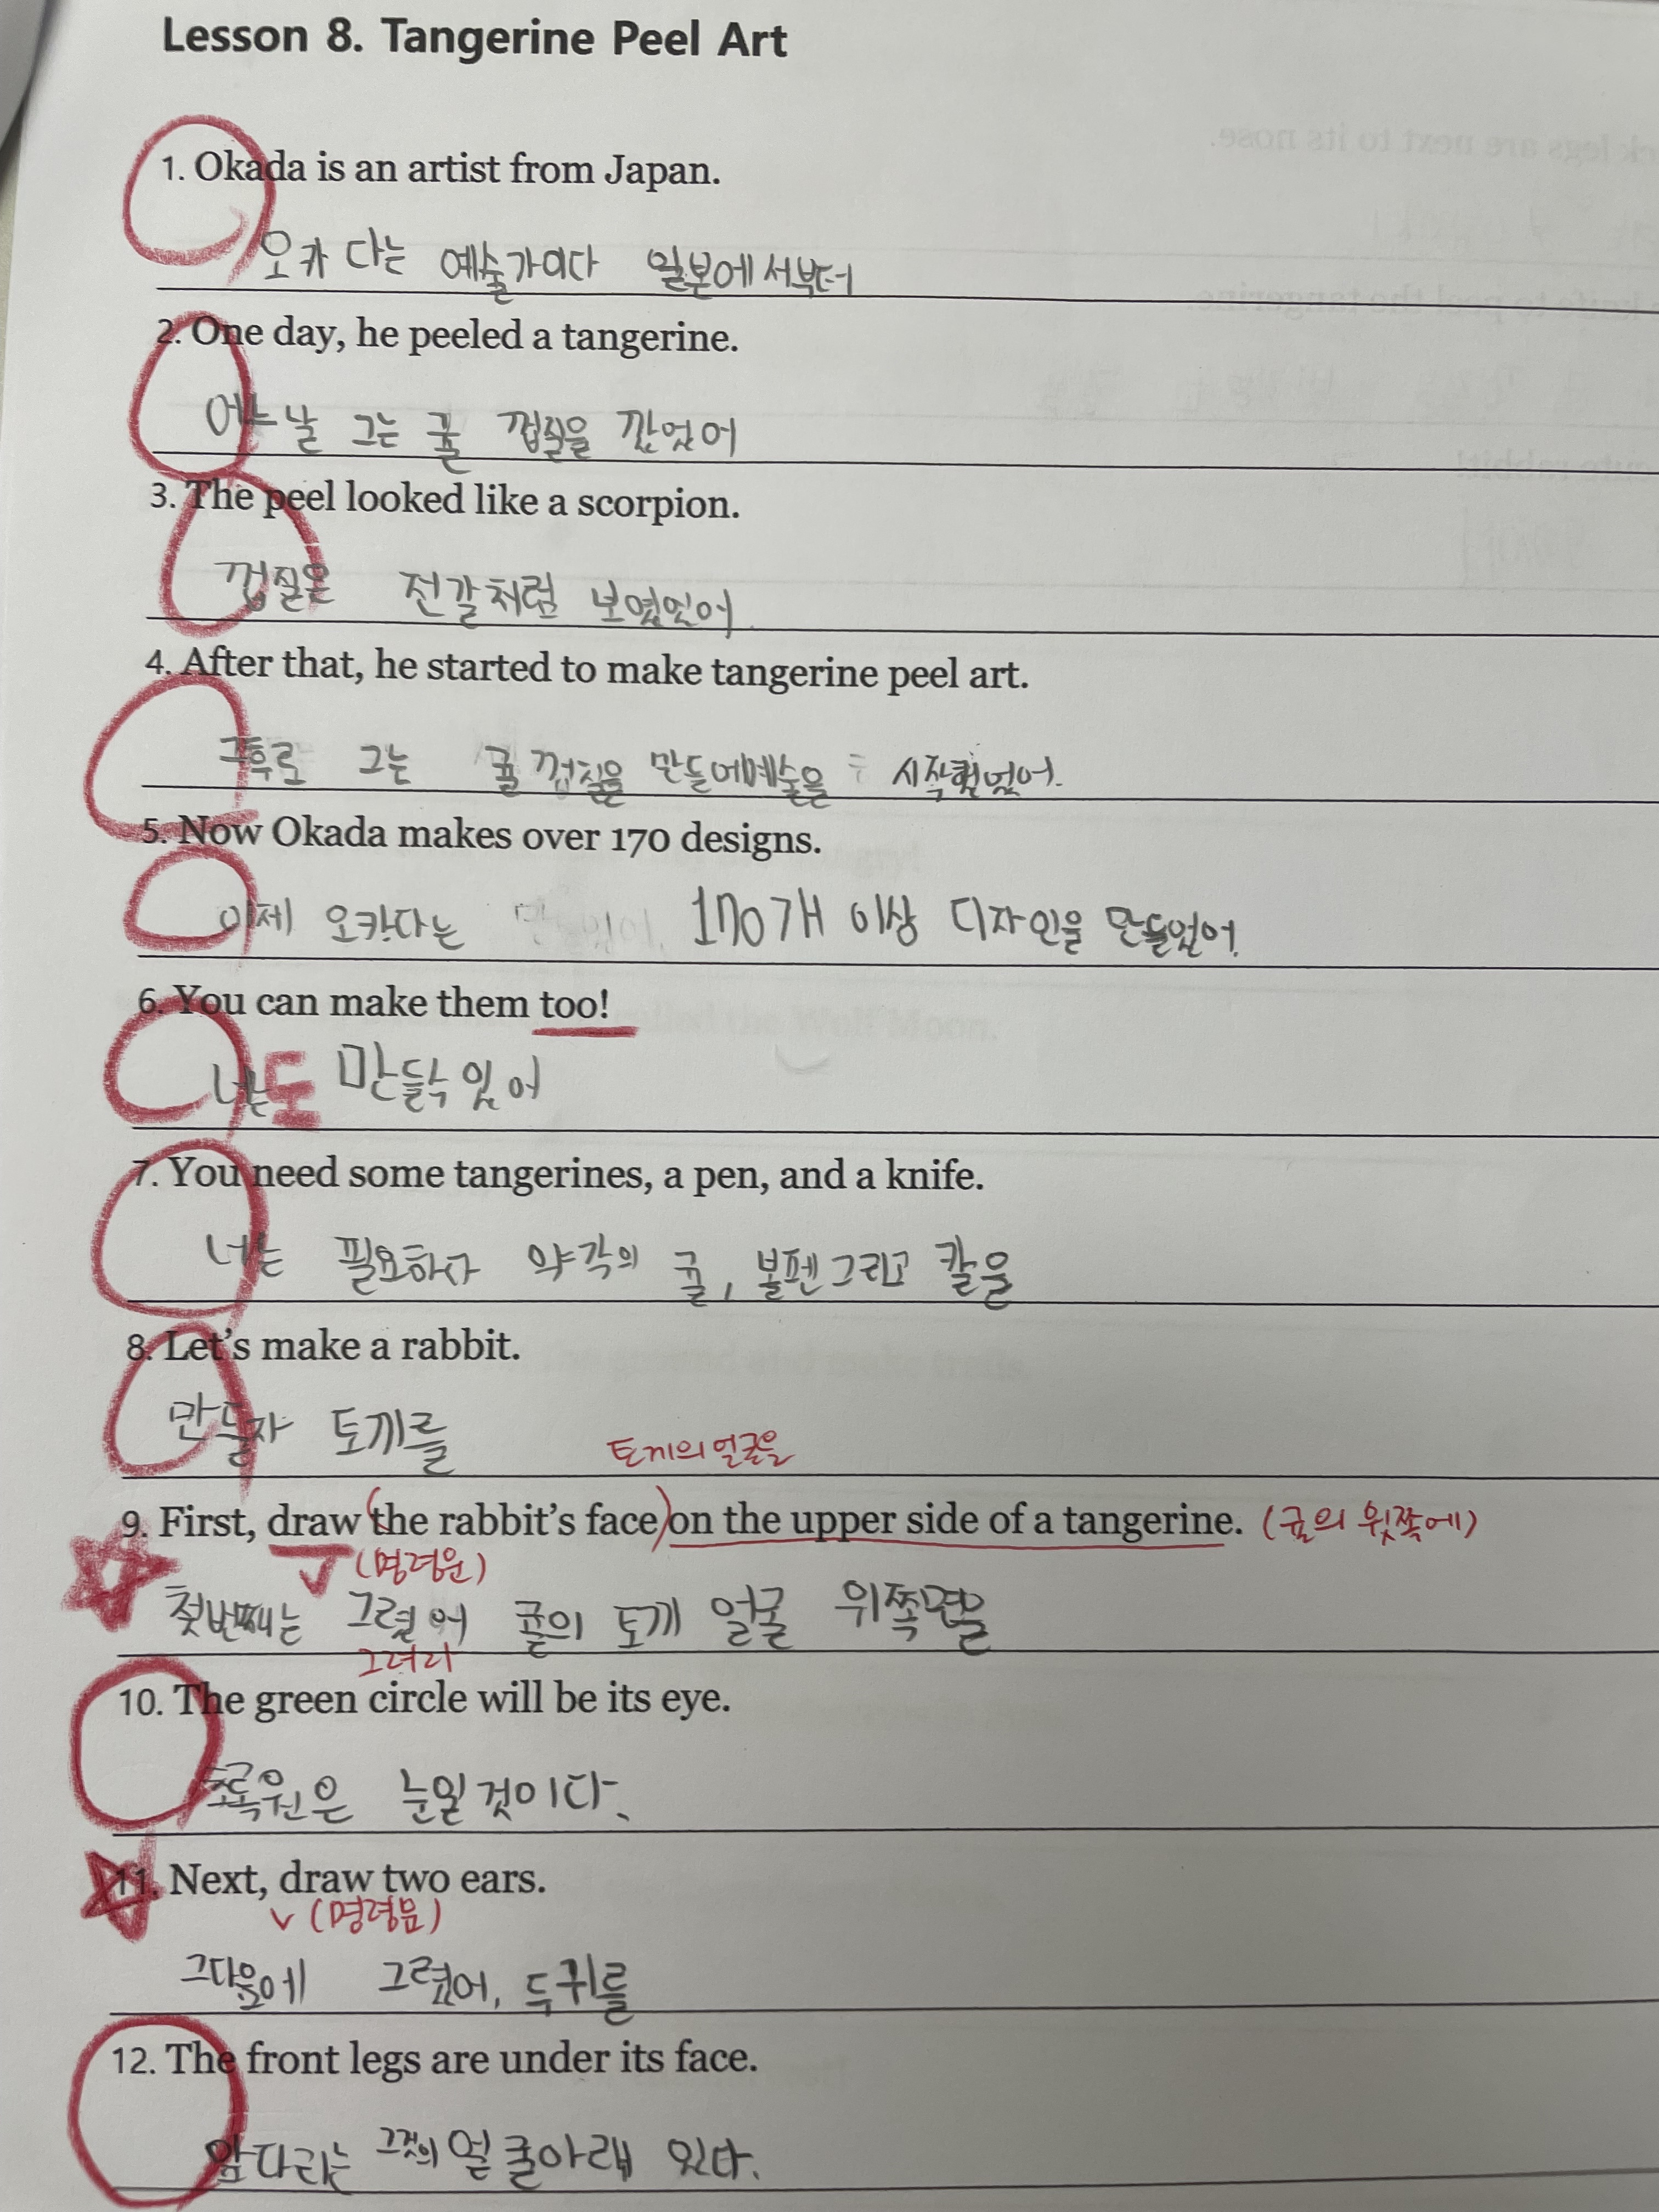 Lesson 8. Tangerine Peel Art
1. Okada is an artist from Japan.
오카다는 예술가이다 일본에서부터
2. One day, he peeled a tangerine.
어느날 그는 귤 껍질을 깠었어
3. The peel looked like a scorpion.
껍질은 전갈처럼 보였었어.
4. After that, he started to make tangerine peel art.
그후로 그는 귤 껍질을 만들어예술을 시작했었어.
5. Now Okada makes over 170 designs.
이제 오카다는 170개 이상 디자인을 만들었어.
6. You can make them too!
너는도 만들수있어
7. You need some tangerines, a pen, and a knife.
너는 필요하다 약각의 귤, 볼펜그리고 칼을
8. Let's make a rabbit.
만들자 토끼를
토끼의 얼굴을
9. First, draw (the rabbit's face) on the upper side of a tangerine. (귤의 윗쪽에)
V (명령문)
첫번째는 그렸어 귤의 토끼 얼굴 위쪽면을
그려라
10. The green circle will be its eye.
초록원은 눈일것이다.
11. Next, draw two ears.
V (명령문)
그다음에 그렸어, 두귀를
12. The front legs are under its face.
앞다리는 그것의 얼굴아래 있다.